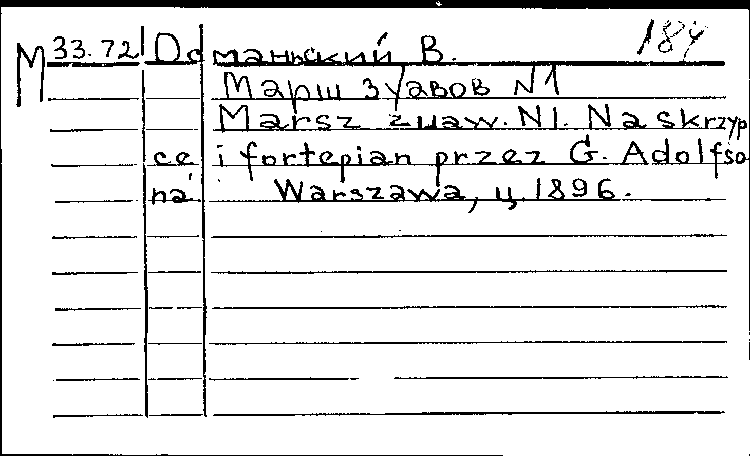 М 33.72 Османьский В. 184
Марш зуавов N1
Marsz żuaw. N1. Na skrzyp
ce i fortepian przez G. Adolfso
na. Warszawa, ц. 1896.